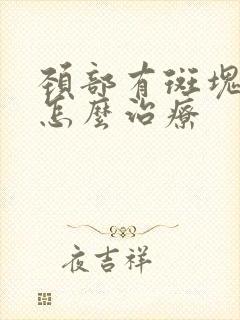 頸部有斑塊
怎麼治療
夜吉祥